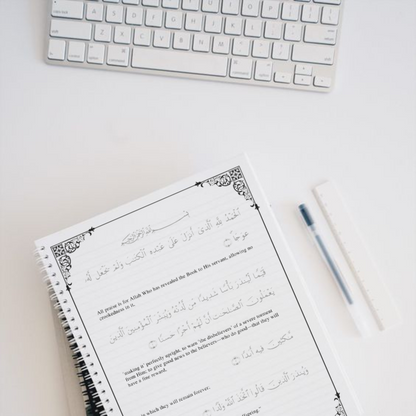 بِسْمِ اللَّهِ الرَّحْمَٰنِ الرَّحِيمِ
الْحَمْدُ لِلَّهِ الَّذِي أَنْزَلَ عَلَىٰ عَبْدِهِ الْكِتَٰبَ وَلَمْ يَجْعَل لَّهُ
عِوَجًا ①
All praise is for Allah Who has revealed the Book to His servant, allowing no
crookedness in it,
قَيِّمًا لِّيُنذِرَ بَأْسًا شَدِيدًا مِّن لَّدُنْهُ وَيُبَشِّرَ الْمُؤْمِنِينَ الَّذِينَ
يَعْمَلُونَ الصَّٰلِحَٰتِ أَنَّ لَهُمْ أَجْرًا حَسَنًا ②
'making it' perfectly upright, to warn 'the disbelievers' of a severe torment
from Him; to give good news to the believers—who do good—that they will
have a fine reward,
مَّٰكِثِينَ فِيهِ أَبَدًا ③
in which they will remain forever.
وَيُنذِرَ الَّذِينَ قَالُوا اتَّخَذَ اللَّهُ وَلَدًا ④
offspring."